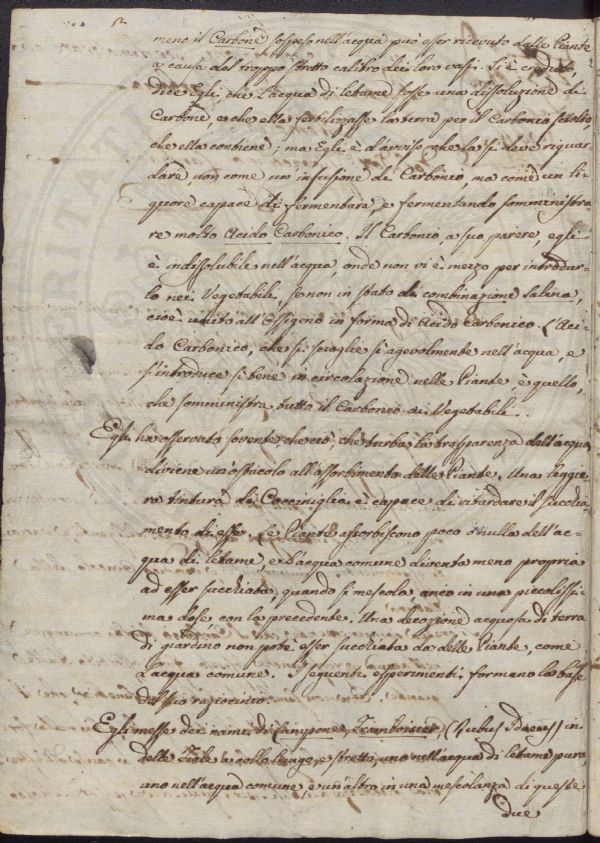 meno il Carbone sospeso nell'acqua può esser ricevuto dalle Piante
a causa del troppo stretto calibro dei loro vasi. Si è creduto
dice Egli che l'acqua di letame fosse una dissoluzione di
Carbone, e che ella fertilizzasse la terra per il Carbonio sciolto,
che ella contiene; ma Egli è d'avviso, che la si deve riguar=
dare, non come un infusione di Carbonio, ma come un li=
quore capace di fermentare, e fermentando somministra=
re molto Acido Carbonico. Il Carbonio, a suo parere, egli
è indissolubile nell'acqua, onde non vi è mezzo per introdur=
lo nei Vegetabili, se non in stato di combinazione Salina,
cioè unito all'Ossigeno in forma di Acido Carbonico. L'Aci=
do Carbonico, che si scioglie sì agevolmente nell'acqua, e
s'introduce sì bene in circolazione nelle Piante, è quello,
che somministra tutto il Carbonio ai Vegetabili.
Egli ha osservato sovente che ciò, che turba la trasparenza dell'acqua
diviene un ostacolo all'assorbimento delle Piante. Una legge=
ra tintura di Cocciniglia è capace di ritardare il succhia=
mento di esse. Le Piante assorbiscono poco o nulla dell'ac=
qua di letame, e l'acqua comune diventa meno propria
ad esser succhiata, quando si mescola, anco in una piccolissi=
ma dose con la precedente. Una decozione acquosa di terra
di giardino non potè esser succhiata da delle Piante, come
l'acqua comune. I seguenti esperimenti formano la base
del suo raziocinio.
Egli messe dei rami di Lampone, Framboisier, (Rubus Idaeus) in
delle Fiale a collo lungo, e stretto, uno nell'acqua di letame pura,
uno nell'acqua comune e un altro in una mescolanza di queste
due